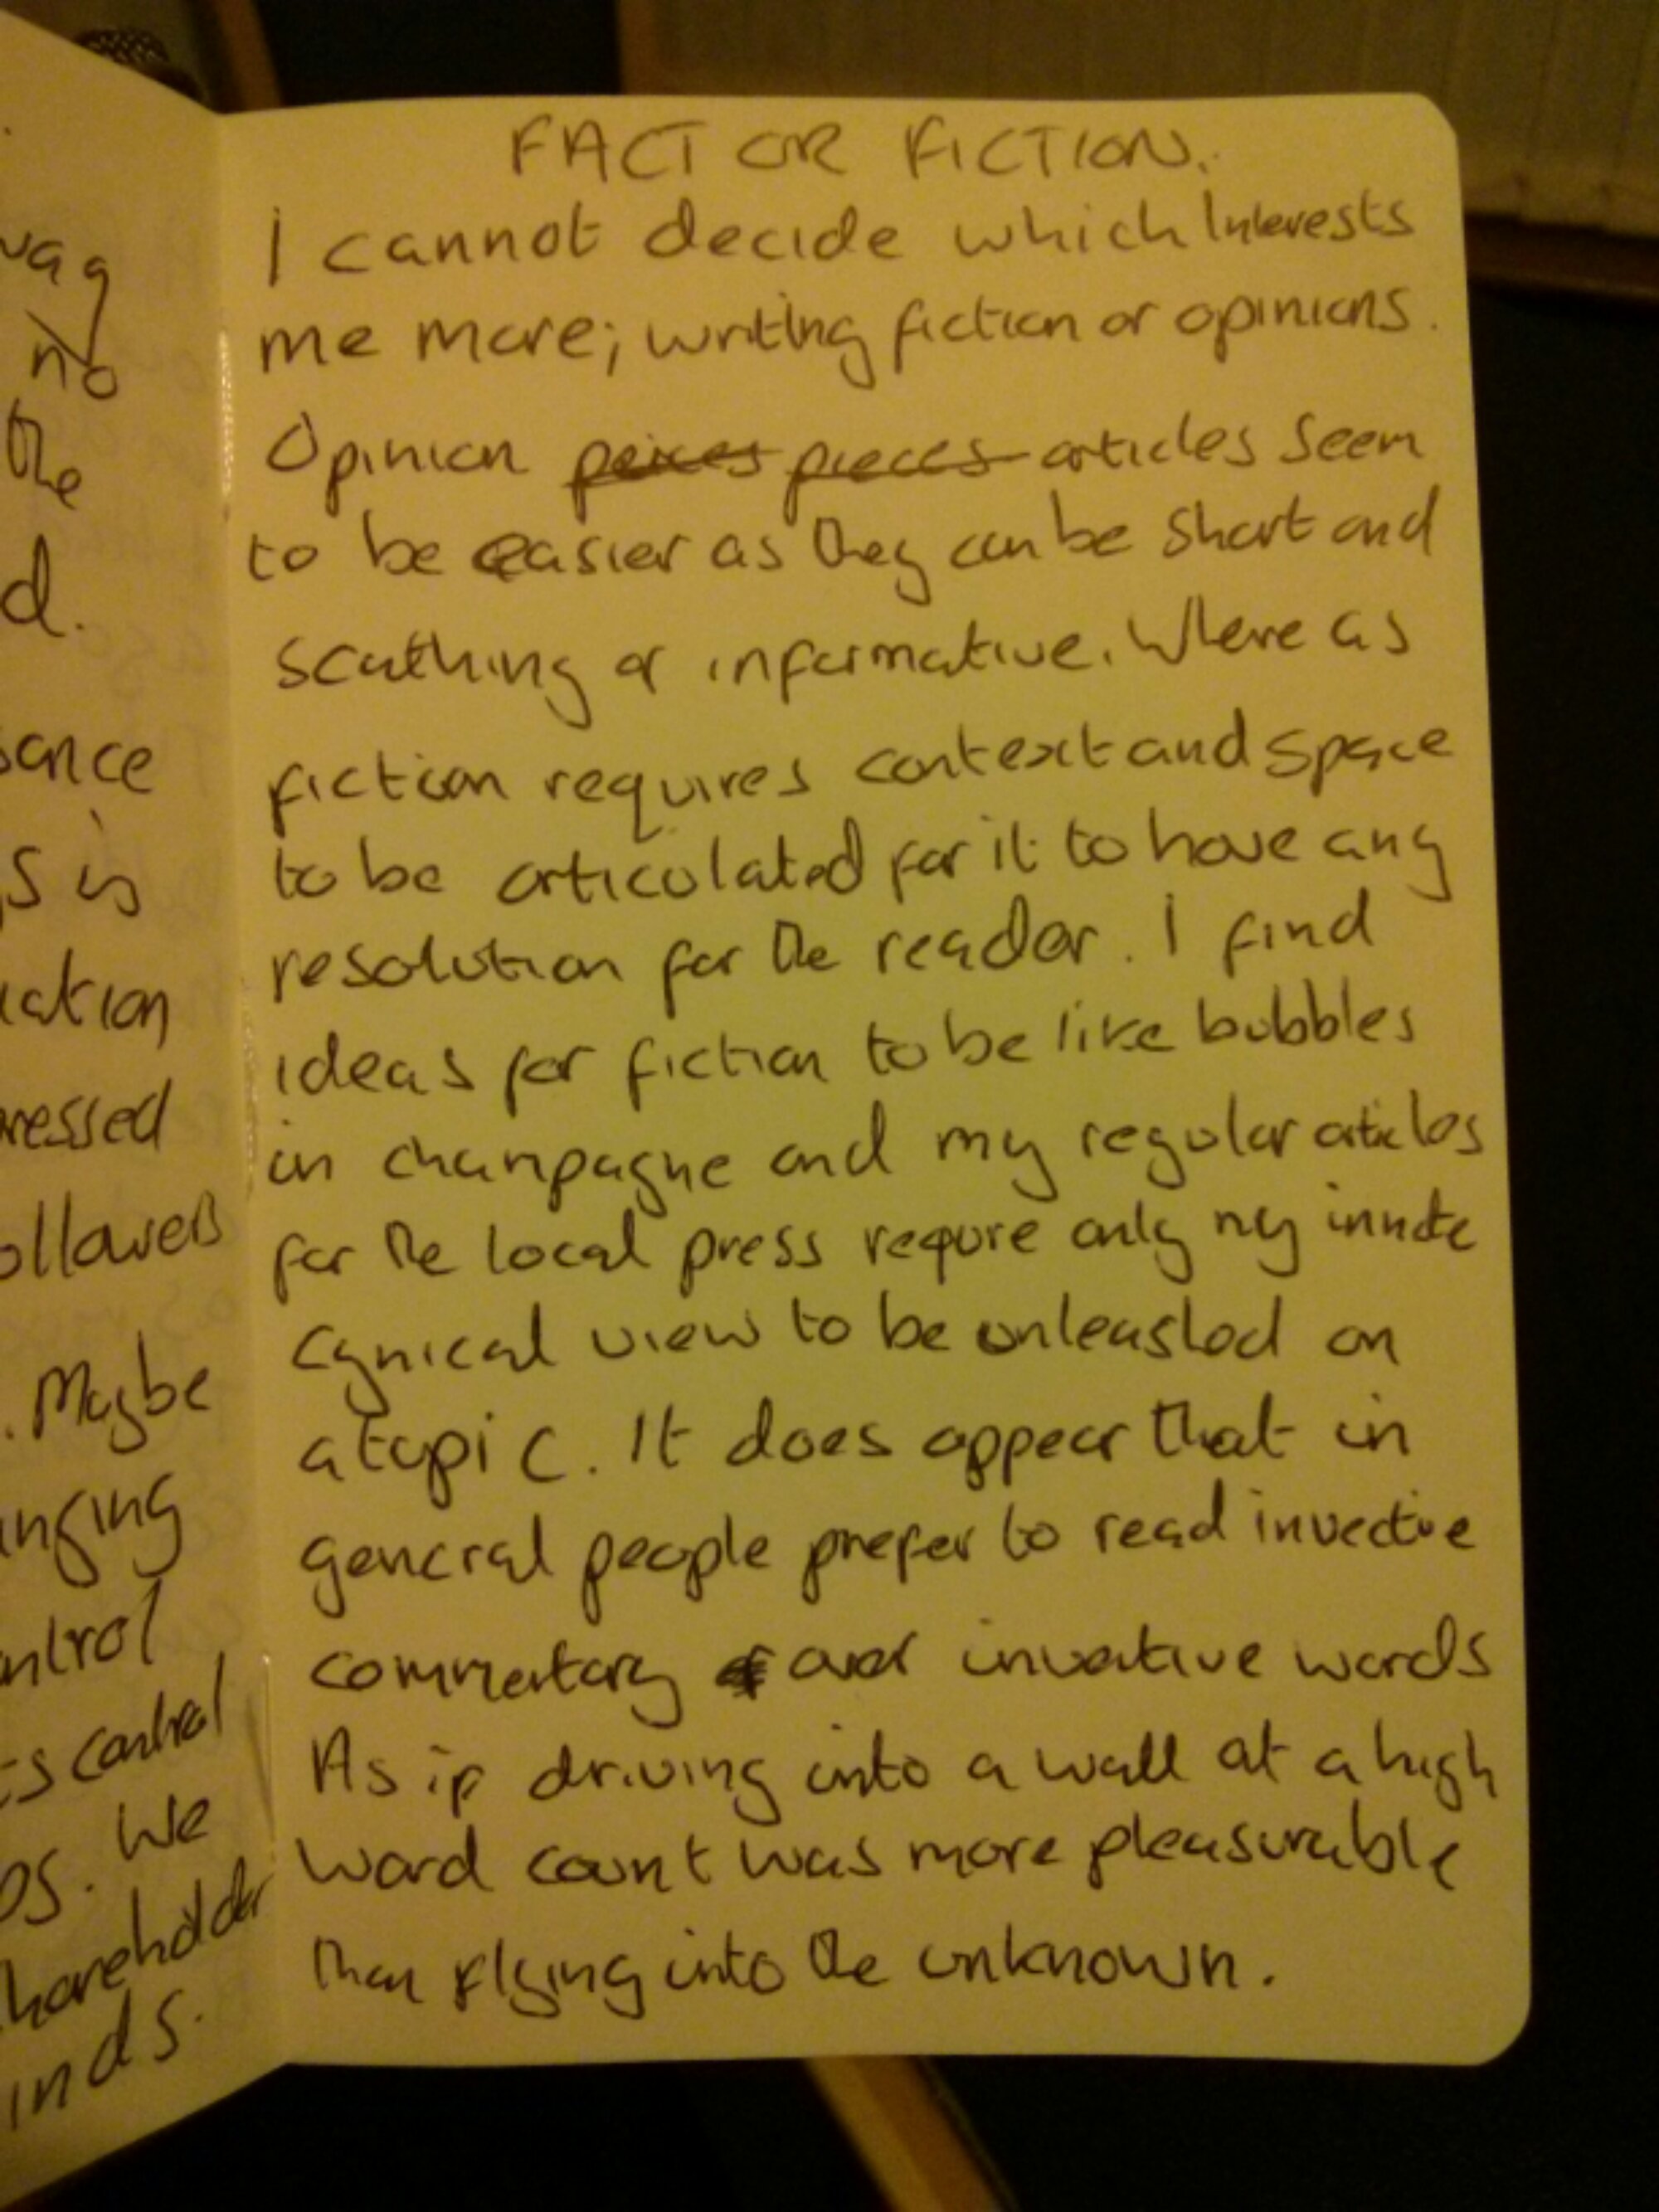 wag
no
the
d.
sance
s is
ation
ressed
ollowers
. Maybe
anging
ntrol
ts control
os. We
hareholder
inds.
FACT OR FICTION.
I cannot decide which Interests
me more; writing fiction or opinions.
Opinion peices pieces articles seem
to be easier as they can be short and
scathing or informative. Where as
fiction requires context and space
to be articulated for it to have any
resolution for the reader. I find
ideas for fiction to be like bubbles
in champagne and my regular articles
for the local press requre only my innate
cynical view to be unleashed on
a topic. It does appear that in
general people prefer to read invective
commentary over inventive words
As if driving into a wall at a high
word count was more pleasurable
than flying into the unknown.